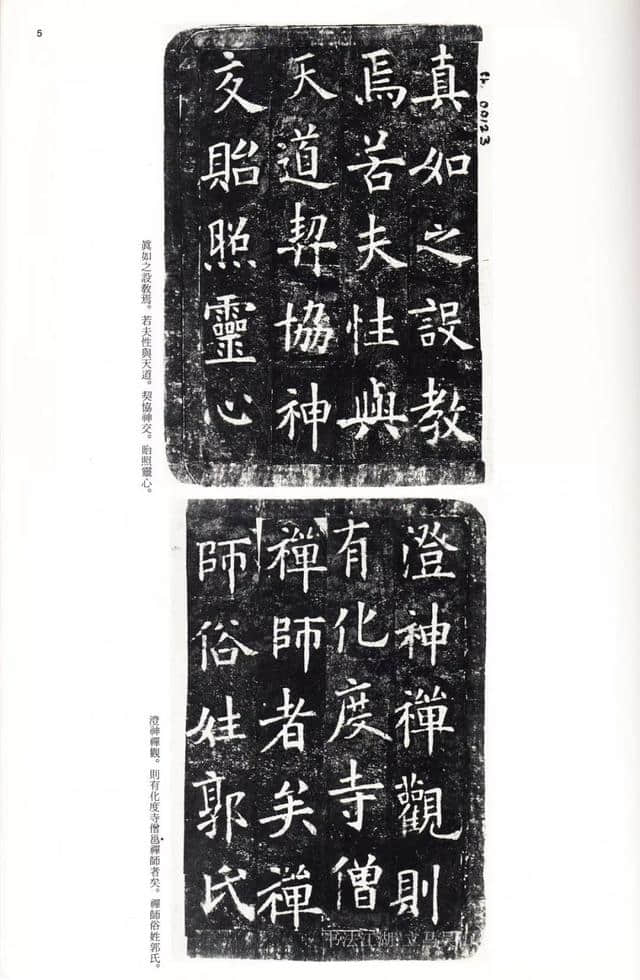 5
ch. 00123
真如之設教
焉若夫性與
天道契協神
交貽照靈心
眞如之設敎焉。若夫性與天道。契協神交。貽照靈心。
澄神禪觀則
有化度寺僧
禪師者矣禪
師俗姓郭氏
澄神禪觀。則有化度寺僧邕禪師者矣。禪師俗姓郭氏。